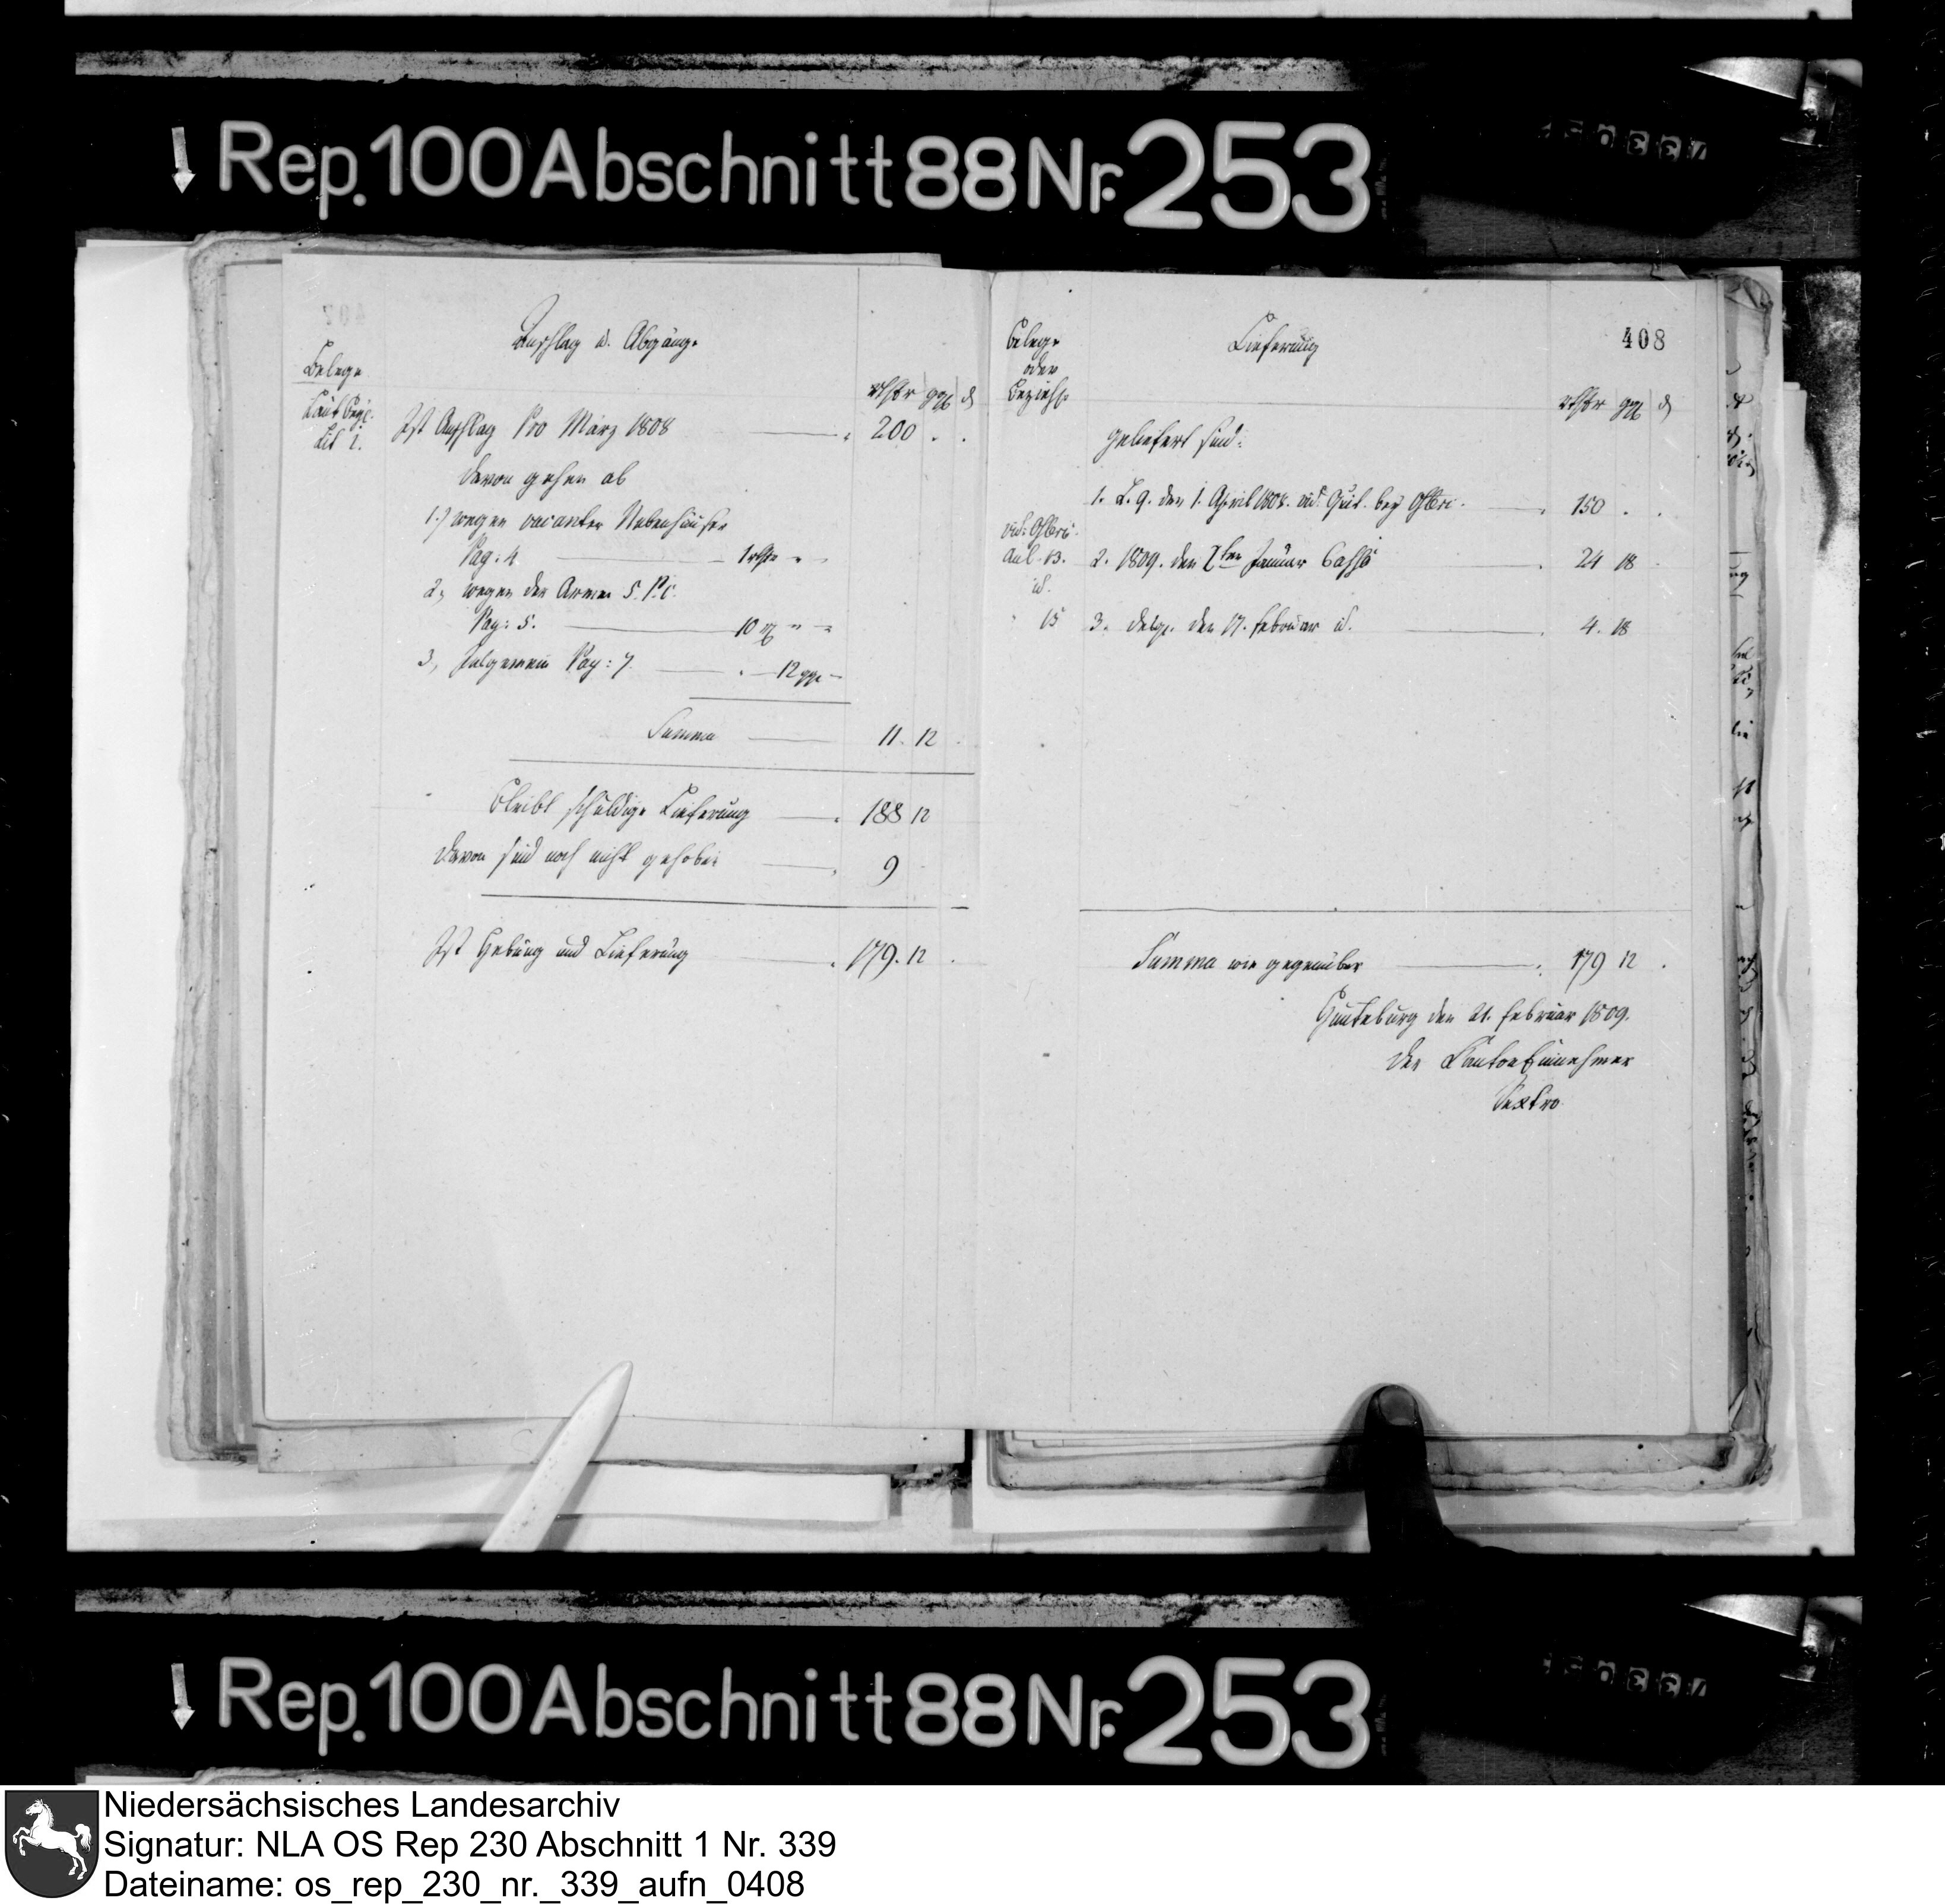 Rep. 100 Abschnitt 88 Nr. 253
Anschlag u. Abgänge
Belege
rthlr ggl d
Laut Beyl.
Lit 1.
Ist Anschlag Pro März 1808 200 . .
davon gehen ab
1.) wegen vacanter Nebenhäuser
Pag: 4 1 rthlr
2, wegen der Armen 5. P.C.
Pag: 5. 10
3, Pag: 7. 12 ggl
Summa 11. 12
Bleibt schuldige Lieferung 188 12
davon sind noch nicht gehoben 9
Ist Hebung und Lieferung 179. 12 .
408
Belege
oder
Lieferung
rthlr ggl d
geliefert sind:
1. den 1. April 1808. vid. Quit. bey 150 . .
vid:
Anl. 13. 2. 1809. den Januar 24 18
id.
15 3. den 17. Februar id. 4. 18
Summa wie gegenüber 179 12 .
den 21. Februar 1809.
Der Kanton Einnehmer
Sextro
Rep. 100 Abschnitt 88 Nr. 253
Niedersächsisches Landesarchiv
Signatur: NLA OS Rep 230 Abschnitt 1 Nr. 339
Dateiname: os_rep_230_nr._339_aufn_0408